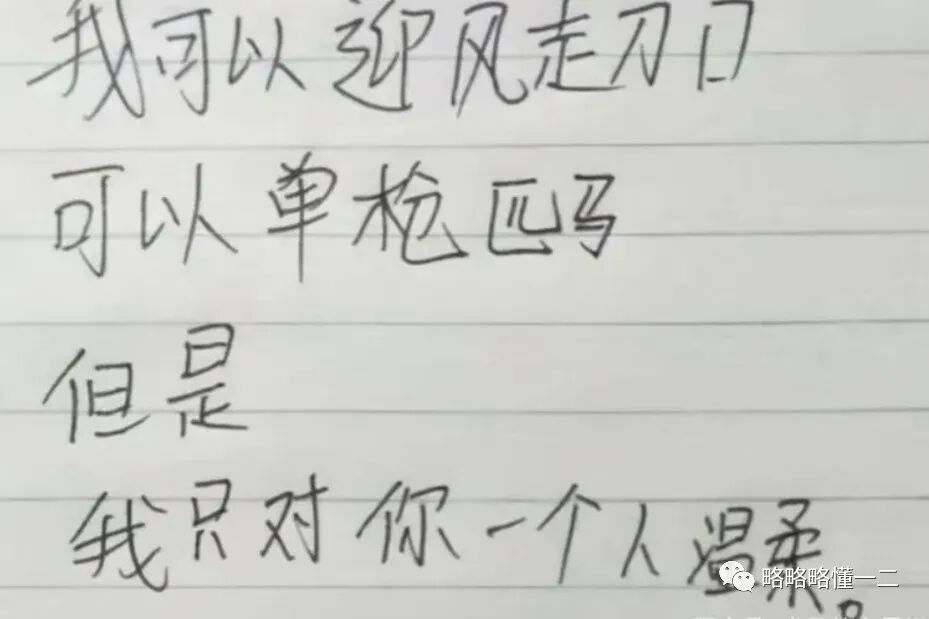 我可以迎风走刀口
可以单枪匹马
但是
我只对你一个人温柔。
略略略懂一二